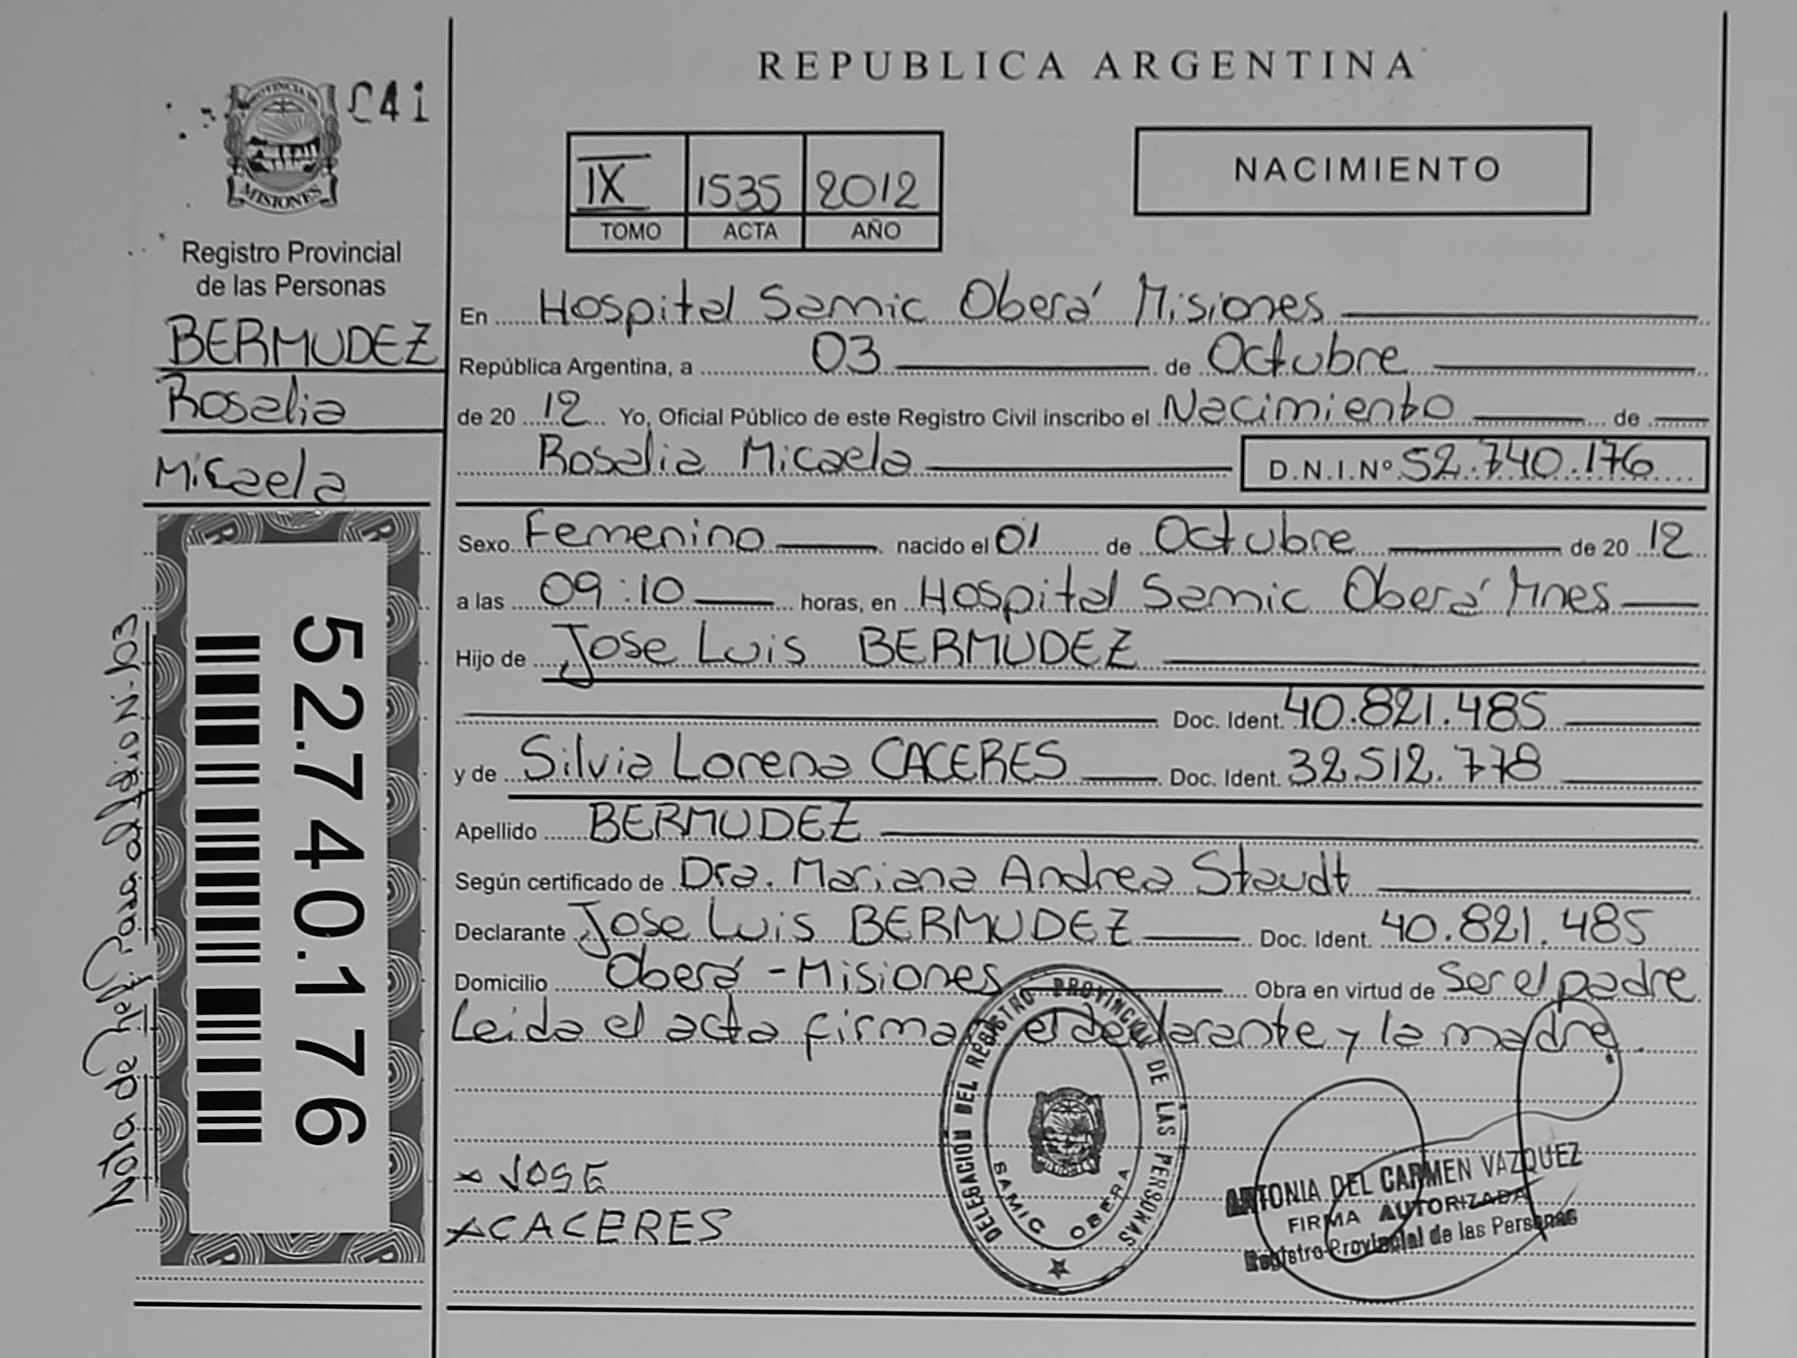 REPUBLICA ARGENTINA
PROVINCIA DE
MISIONES
C41
Registro Provincial
de las Personas
BERMUDEZ
Rosalia
Micaela
52.740.176
IX 1535 2012
TOMO ACTA AÑO
NACIMIENTO
En Hospital Samic Oberá Misiones
República Argentina, a 03 de Octubre
de 20 12 Yo, Oficial Público de este Registro Civil inscribo el Nacimiento de
Rosalia Micaela D.N.I.Nº 52.740.176
Sexo Femenino nacido el 01 de Octubre de 20 12
a las 09:10 horas, en Hospital Samic Oberá Mnes
Hijo de Jose Luis BERMUDEZ
Doc. Ident. 40.821.485
y de Silvia Lorena CACERES Doc. Ident. 32512.778
Apellido BERMUDEZ
Según certificado de Dra. Mariana Andrea Staudt
Declarante Jose Luis BERMUDEZ Doc. Ident. 40.821.485
Domicilio Oberá - Misiones Obra en virtud de Ser el padre
Leida el acta firman el declarante y la madre.
x JOSE
x CACERES
DELEGACION DEL REGISTRO PROVINCIAL DE LAS PERSONAS
SAMIC OBERA
ANTONIA DEL CARMEN VAZQUEZ
FIRMA AUTORIZADA
Registro Provincial de las Personas
Nota de Ref. Para al folio N: 103